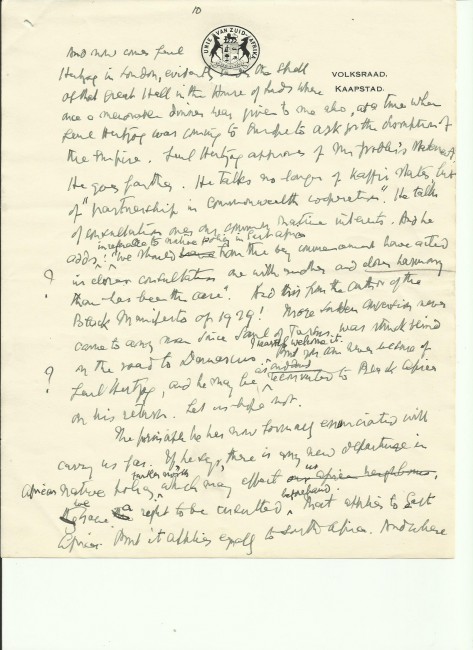 10
UNIE VAN ZUID-AFRIKA
VOLKSRAAD,
KAAPSTAD.
And now comes Genl
Hertzog in London, evidently under the spell
of that Great Hall in the House of Lords where
once a memorable dinner was given to me also, at a time when
Genl Hertzog was coming to Europe to ask for the disruption of
the Empire. Genl Hertzog approves of Mr
He goes farther. He talks no longer of Kaffir States, but
of "partnership in Commonwealth cooperation". He talks
of consultation over our common native interests. And he
in reference to native policy in East Africa
adds: "We should have from the very commencement have acted
? in closer consultation one with another and closer harmony
than has been the case". And this from the author of the
Black Manifesto of 1929! More sudden conversion never
came to any man since Saul of Tarsus was struck blind
on the road to Damascus. I heartily welcome it. But you can never be sure of
? Genl Hertzog, and he may be as suddenly reconverted to Black Africa
on his return. Let us hope not.
The principle he has now formally enunciated will
carry us far. If he says, there is any new departure in
African native policy further north which may affect us our African neighbours,
we have a right to be consulted beforehand. That applies to East
Africa. But it applies equally to South Africa. And where